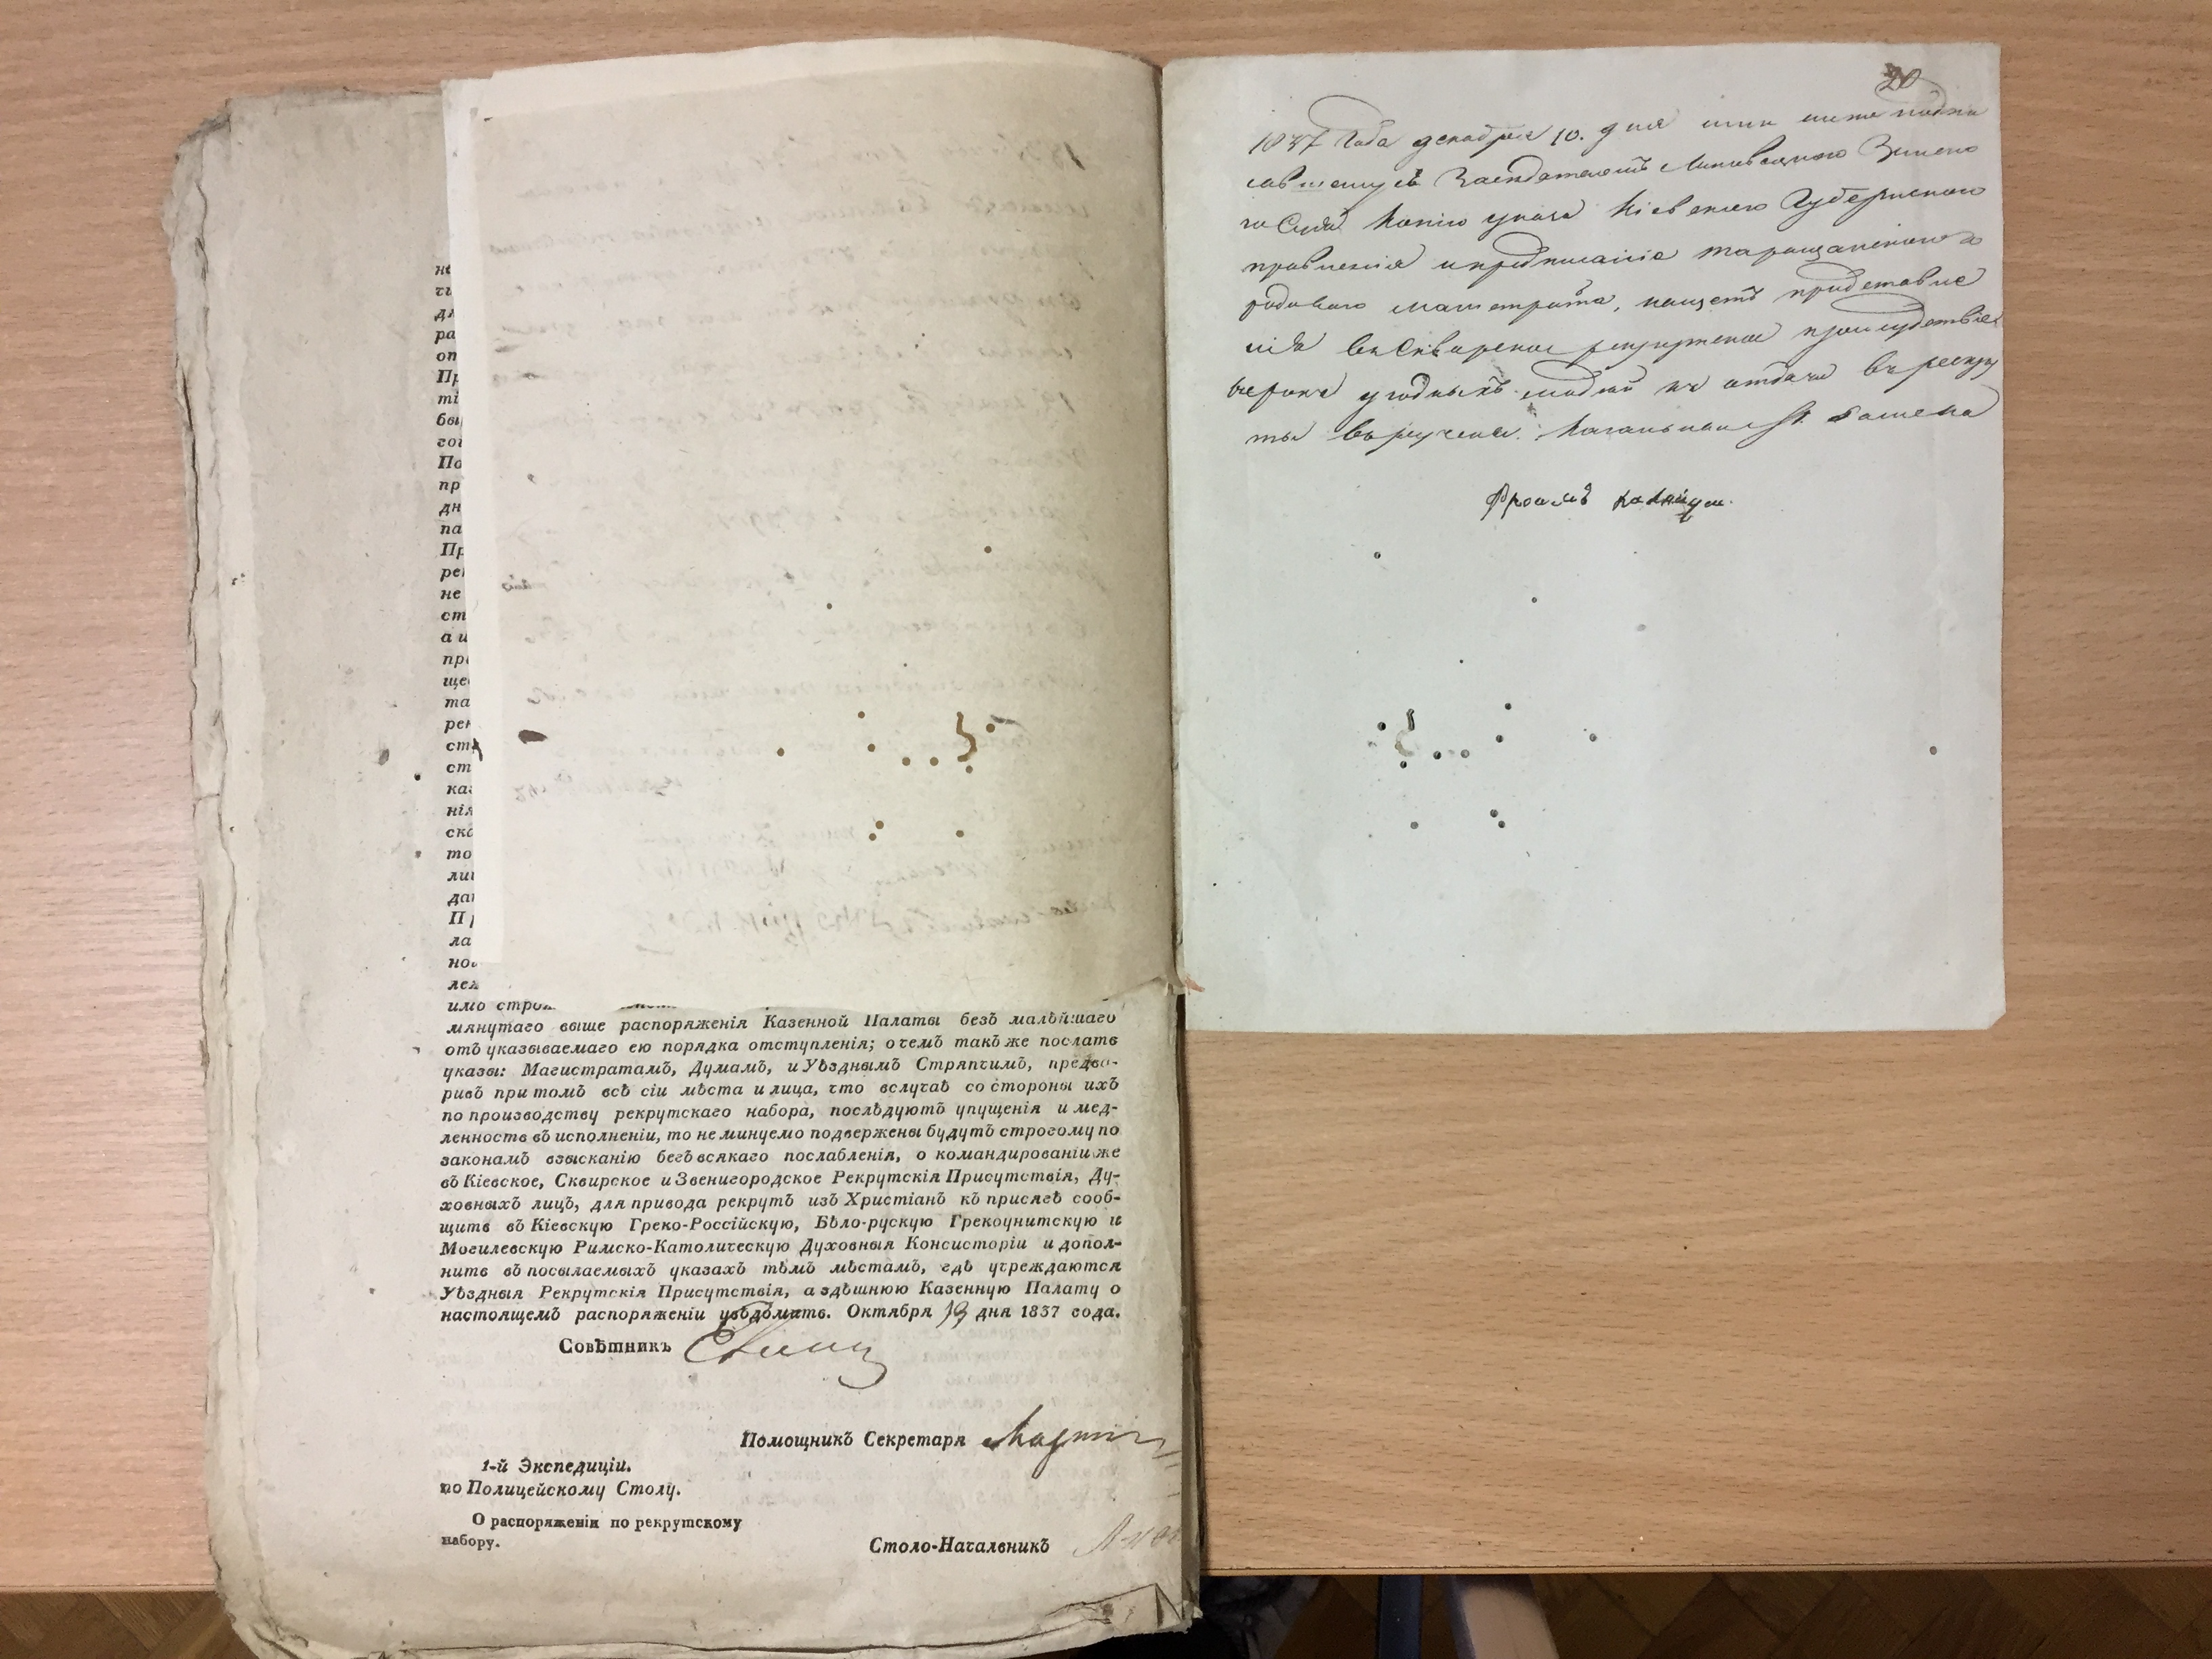 на
ти
дл
ра
оп
Пр
ті
бы
гог
По
пр
дн
па
Пр
рек
не
ст
а и
про
ще
та
рек
ст
ст
каз
нія
ска
то
ли
дан
Пр
ла
но
леж
имо строж
мянутаго выше распоряженія Казенной Палаты безъ малѣйшаго
отъ указываемаго ею порядка отступленія; о чемъ такъ же послать
указы: Магистратамъ, Думамъ, и Уѣзднымъ Стряпчимъ, предва-
ривъ при томъ всѣ сіи мѣста и лица, что вслучаѣ со стороны ихъ
по производству рекрутскаго набора, послѣдуютъ упущенія и мед-
ленность въ исполненіи, то не минуемо подвержены будутъ строгому по
законамъ взысканію безъ всякаго послабленія, о командированіи же
въ Кіевское, Сквирское и Звенигородское Рекрутскія Присутствія, Ду-
ховныхъ лицъ, для привода рекрутъ изъ Христіанъ къ присягѣ сооб-
щить въ Кіевскую Греко-Россійскую, Бѣло-рускую Грекоунитскую и
Могилевскую Римско-Католическую Духовныя Консисторіи и допол-
нить въ посылаемыхъ указахъ тѣмъ мѣстамъ, гдѣ учреждаются
Уѣздныя Рекрутскія Присутствія, а здѣшнюю Казенную Палату о
настоящемъ распоряженіи увѣдомить. Октября 19 дня 1837 года.
Совѣтникъ
Помощникъ Секретаря
1-й Экспедиціи.
по Полицейскому Столу.
О распоряженіи по рекрутскому
набору.
Столо-Начальникъ
20
1837 Года декабря 10. дня мнѣ ниже подпи
савшемуся Засѣдателемъ Липовецкого Земско
го Суда Копію указа Кіевского Губернского
правленія и предписаніе таращанского го
родового магистрата, нащетъ представле
нія въ Сквирское рекрутское присудствіе
угодныхъ людей къ отдачи въ рекру
ты вручена.